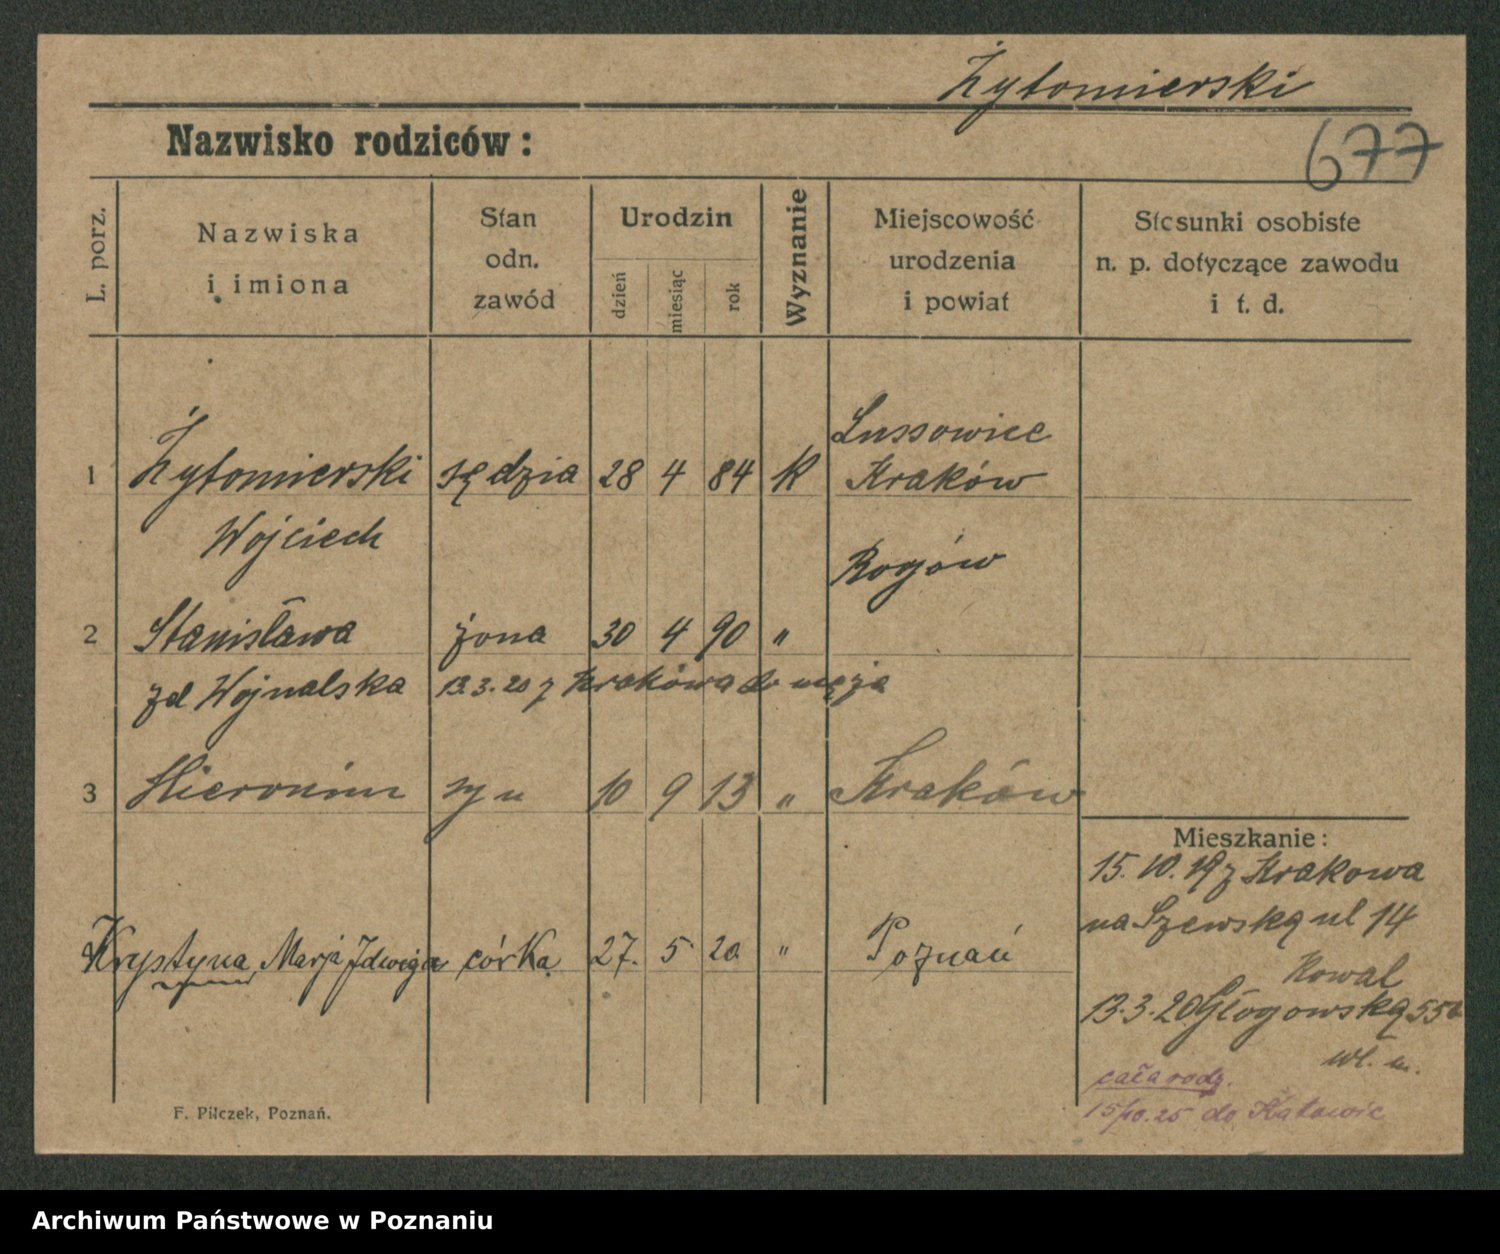 Żytomierski
677
Nazwisko rodziców:
L. porz.
Nazwiska
i imiona
Stan
odn.
zawód
Urodzin
dzień
miesiąc
rok
Wyznanie
Miejscowość
urodzenia
i powiat
Stosunki osobiste
n. p. dotyczące zawodu
i t. d.
Lussowice
1 Żytomierski sędzia 28 4 84 K Kraków
Wojciech
Rogów
2 Stanisława żona 30 4 90 "
zd Wojnalska 13.3.20 z Krakowa do męża
3 Hieronim syn 10 9 13 " Kraków
Krystyna Marja Jdwiga córka 27. 5 20. " Poznań
Mieszkanie:
15.10.19 z Krakowa
na Szewską ul 14
Kowal
13.3.20 Głogowską 55
wł. m.
cała rodz.
15/10.25 do Katowic
F. Pilczek, Poznań.
Archiwum Państwowe w Poznaniu